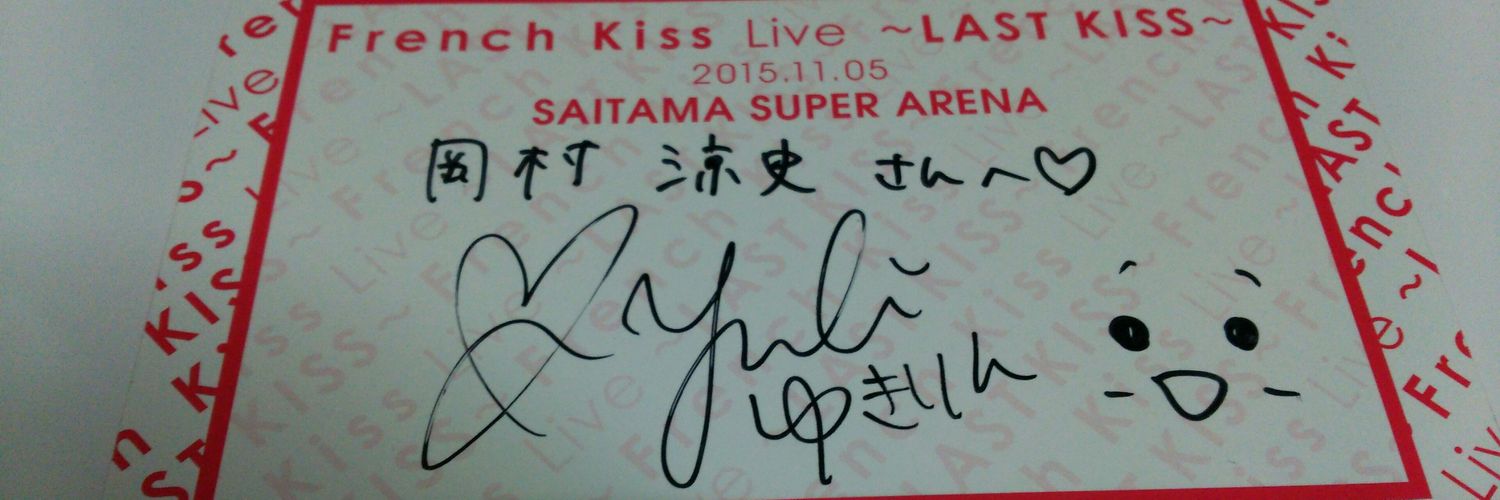 French Kiss Live ~LAST KISS~
2015.11.05
SAITAMA SUPER ARENA
岡村 涼史 さんへ♡
Yuki
ゆきりん